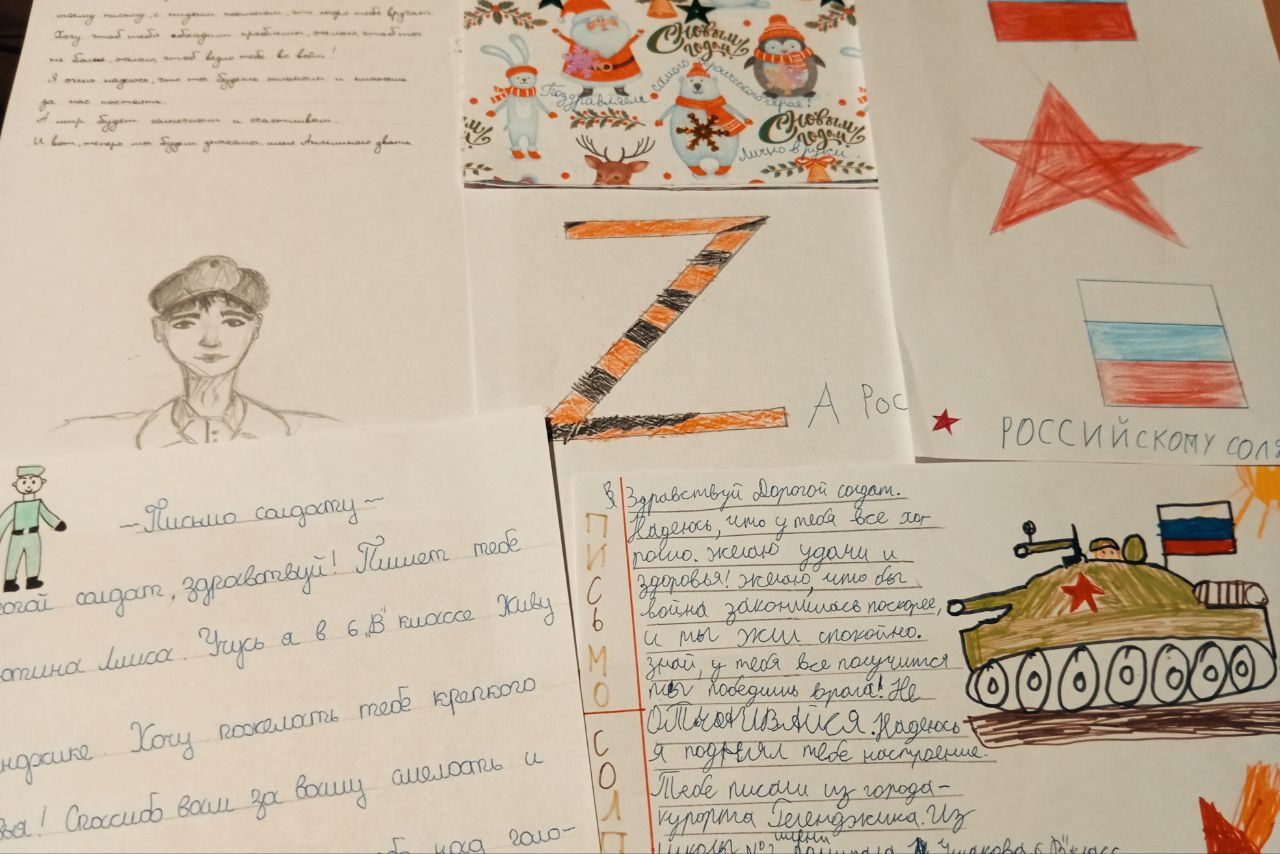 моему письму, с
Хочу чтоб тебя обходили проблемы, желаю, чтоб ты
не болел, желаю чтоб везло тебе во всём!
Я очень надеюсь, что ты будешь сильным и сможешь
за нас постоять.
А мир будет солнечным и счастливым.
И вот, теперь мы будем
С Новым
годом!
Поздравляем самого героического героя!
С Новым
годом!
Лично в руки.
А Рос
РОССИЙСКОМУ СОЛД
~Письмо солдату~
рогой солдат, здравствуй! Пишет тебе
Алиса. Учусь я в 6 „В" классе Живу
нджике. Хочу пожелать тебе крепкого
вья! Спасибо вам за вашу смелость и
над голо-
ПИСЬМО
СОЛД
Здравствуй Дорогой солдат.
Надеюсь, что у тебя все хо-
рошо. Желаю удачи и
здоровья! Желаю, что бы
война закончилась поскорее,
и мы жили спокойно.
Знай, у тебя все получится
ты победишь врага! Не
ОТЧАИВАЙСЯ. Надеюсь
я поднял тебе настроение.
Тебе писали из города-
курорта Геленджика. Из
школы №2 имени Адмирала Ушакова 6„В" класс